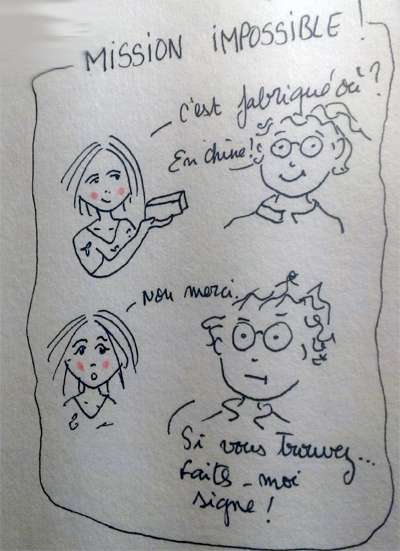 MISSION IMPOSSIBLE !
c'est fabriqué où ?
En chine !
non merci.
Si vous trouvez...
faites-moi
signe !